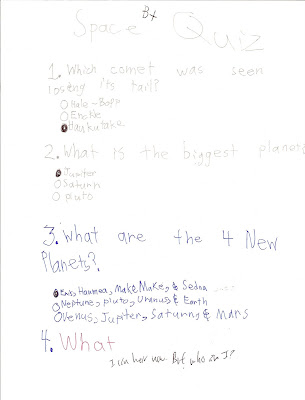 B+
Space Quiz
1. Which comet was seen
losing its tail?
Hale-Bopp
Encke
Hyakutake
2. What is the biggest planet?
Jupiter
Saturn
Pluto
3. What are the 4 New
Planets?
Eris, Haumea, MakeMake, & Sedna
Neptune, Pluto, Uranus, & Earth
Venus, Jupiter, Saturn, & Mars
4. What
I am here now. But who am I?